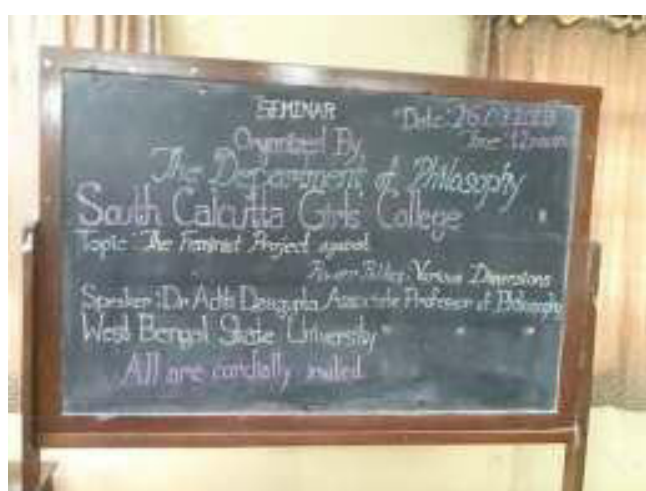 SEMINAR
Organized By
Time: 12 noon
The Department of Philosophy
South Calcutta Girls' College
Topic: The Feminist Project against
Power Politics, Various Dimensions
Speaker: Dr Aditi Dasgupta, Associate Professor of Philosophy
West Bengal State University
All are cordially invited